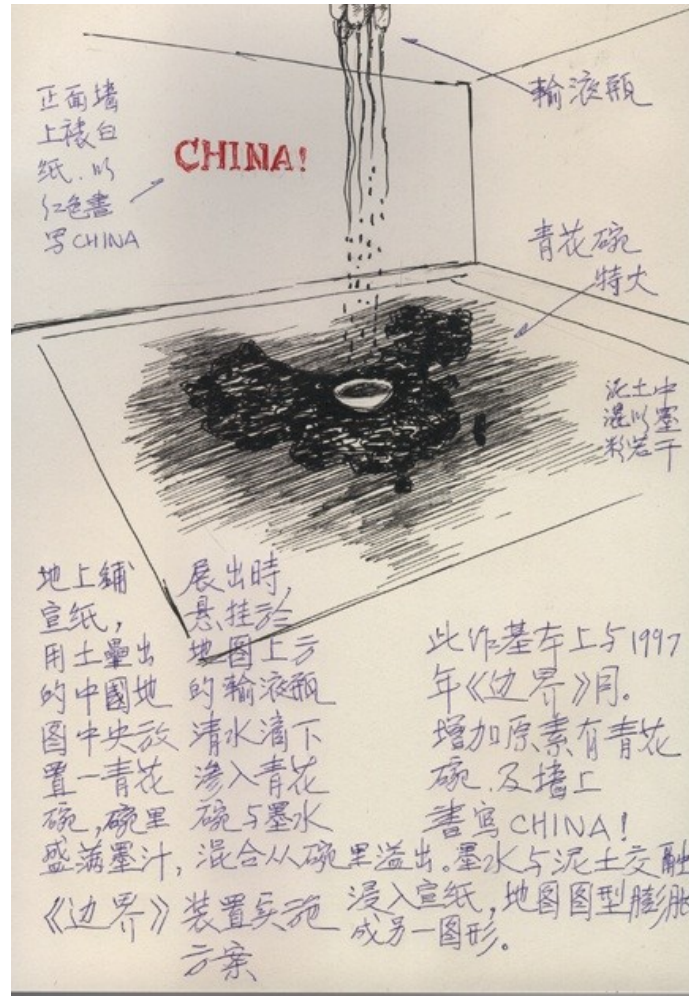 正面墙
上裱白
纸.以
红色書
写CHINA
CHINA!
輸液瓶
青花碗
特大
泥土中
混以墨
粉若干
地上鋪
宣纸,
用土壘出
的中國地
图中央放
置一青花
碗,碗里
盛满墨汁,
展出時,
悬挂於
地图上方
的輸液瓶
清水滴下
渗入青花
碗与墨水
混合从碗里溢出。墨水与泥土交融
浸入宣纸,地图图型膨胀
成另一图形。
此作基本上与1997
年《边界》同。
增加原素有青花
碗.及墙上
書寫CHINA!
《边界》装置实施
方案